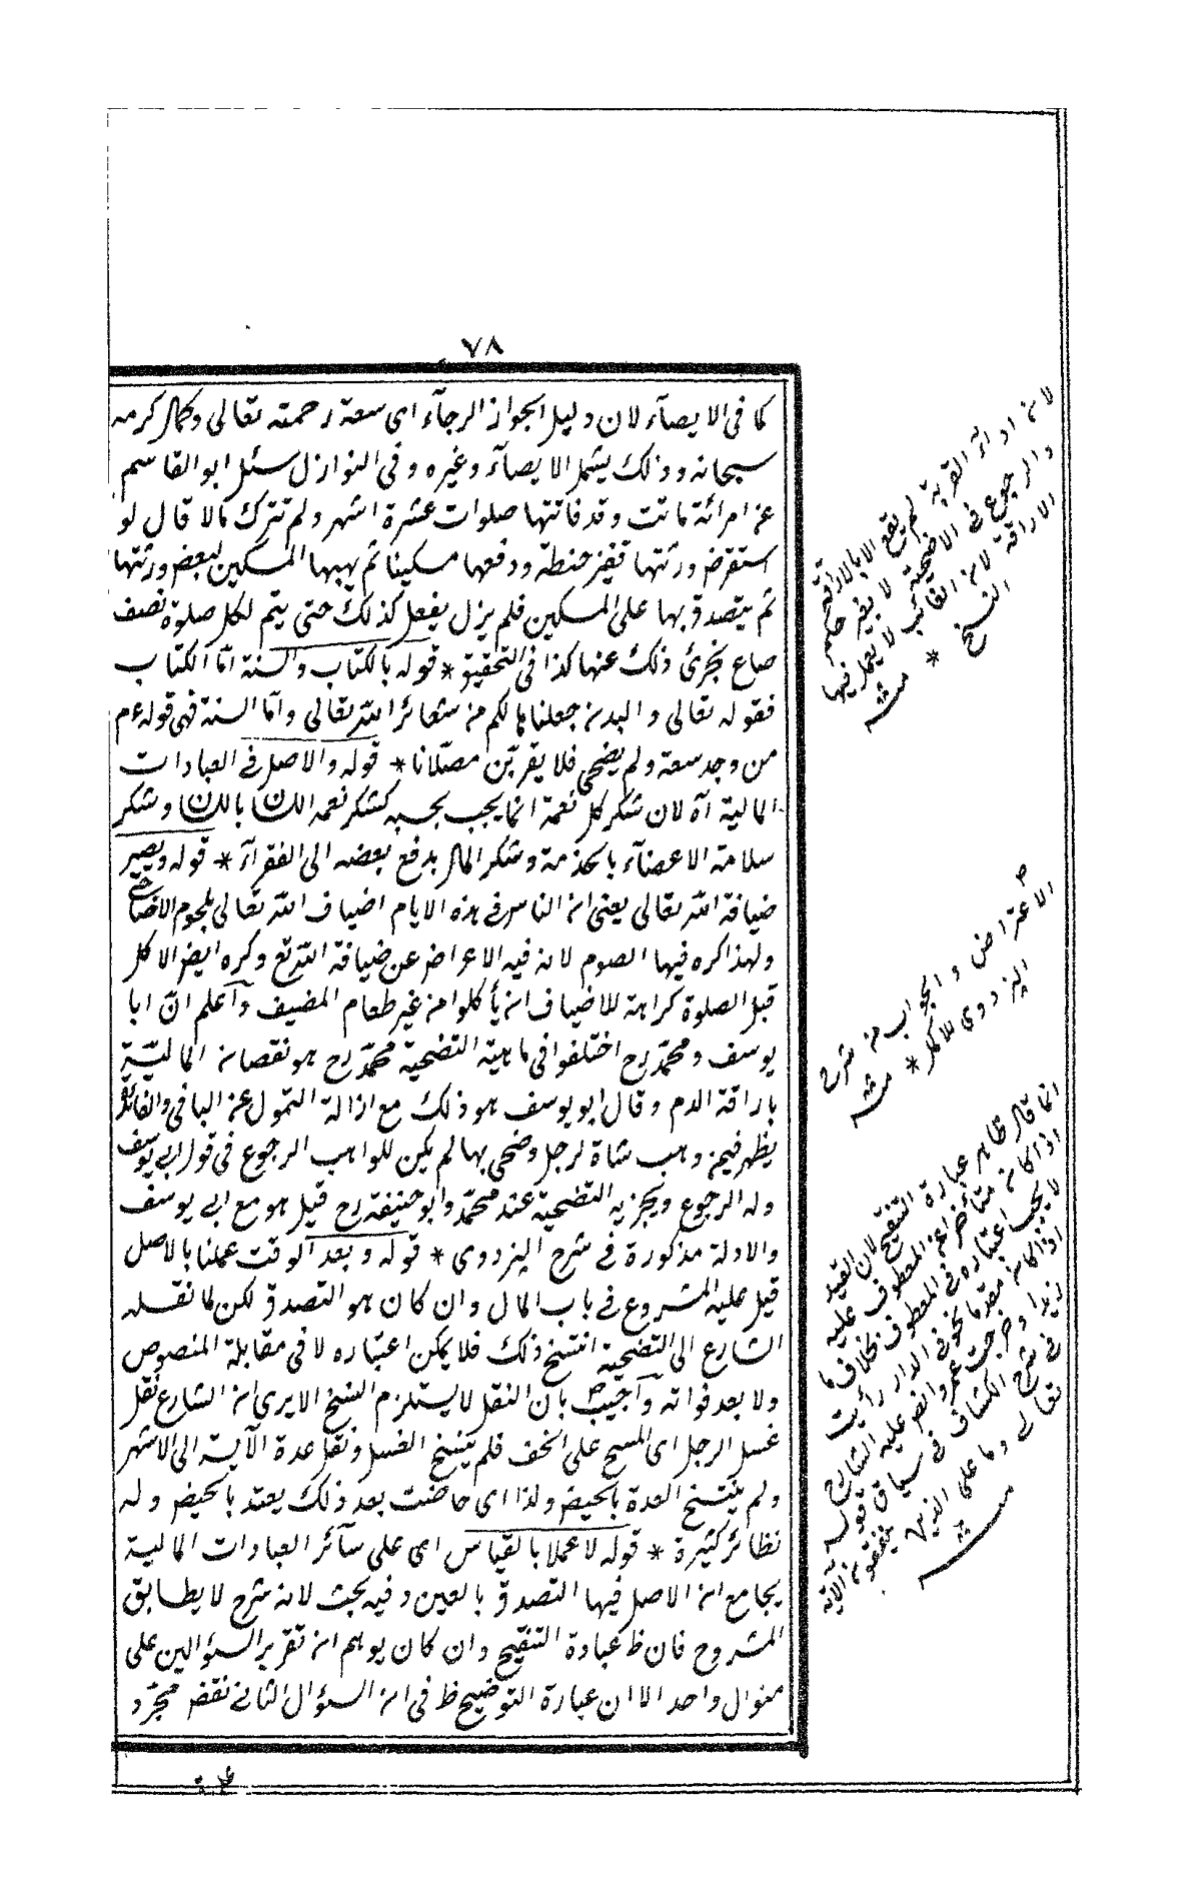 ٧٨
كما فى الايصاء لان دليل الجواز الرجاء اى سعة رحمته تعالى وكمال كرمه
سبحانه وذلك يشمل الايصاء وغيره وفى النوازل سئل ابو القاسم
عن امرأة ماتت وقد فاتتها صلوات عشرة اشهر ولم تترك مالا قال لو
استقرض ورثتها قفيز حنطة ودفعها مسكينا ثم يهبها المسكين لبعض ورثتها
ثم يتصدق بها على المسكين فلم يزل يفعل كذلك حتى يتم لكل صلوة نصف
صاع يجزئ ذلك عنها كذا فى التحقيق * قوله بالكتاب والسنة امّا الكتاب
فقوله تعالى والبدن جعلناها لكم من شعائر الله تعالى وامّا السنة فهى قوله عم
من وجد سعة ولم يضحى فلا يقربن مصلانا * قوله والاصل فى العبادات
المالية آه لان شكر كل نعمة انما يجب بحسبه كشكر نعمه بالن وشكر
سلامة الاعضاء بالخدمة وشكر المال بدفع بعضه الى الفقراء * قوله ويصير
ضيافة الله تعالى يعنى ان الناس فى هذه الايام اضياف الله تعالى بلحوم الاضاحى
ولهذا كره فيها الصوم لانه فيه الاعراض عن ضيافة الله تع وكره ايضا الاكل
قبل الصلوة كراهة للاضياف ان يأكلوا من غير طعام المضيف وآعلم انّ ابا
يوسف ومحمّد رح اختلفوا فى ماهية التضحية محمّد رح هو نقصان الماليّة
باراقة الدم وقال ابو يوسف هو ذلك مع ازالة التمول عن الباقى والفائدة
يظهر فيمن وهب شاة لرجل وضحى بها لم يكن للواهب الرجوع فى قول ابى يوسف
وله الرجوع ويجزيه التضحية عند محمّد وابو حنيفة رح قيل هو مع ابى يوسف
والادلة مذكورة فى شرح البزدوى * قوله وبعد الوقت عملنا بالاصل
قيل عليه المشروع فى باب المال وان كان هو التصدق لكن لما نقله
الشارع الى التضحية انتسخ ذلك فلا يمكن اعتباره لا فى مقابلة المنصوص
ولا بعد فواته وآجيب بان النقل لا يستلزم النسخ الا يرى ان الشارع نقل
غسل الرجل اى المسح على الخف فلم ينسخ الغسل ونقل عدة الآيسة الى الاشهر
ولم ينتسخ العدة بالحيض ولذا اى حاضت بعد ذلك يعتد بالحيض وله
نظائر كثيرة * قوله لا عملا بالقياس اى على سآئر العبادات المالية
بجامع ان الاصل فيها التصدق بالعين وفيه بحث لانه شرح لا يطابق
المشروح فان ظ عبادة التنقيح وان كان يوهم ان تقرير السؤالين على
منوال واحد الا ان عبارة التوضيح ظ فى ان السؤال الثانى نقض مجرّد
لان اداء القربة لم يقع الا بالاراقة
والرجوع فى الاضحية لا يغير حكم
الاراقة لان الفائت لا يعمل فيها
الفسخ * منه
الاعتراض والجواب من شرح
البزدوى للاكمل * منه
انما قال ظاهر عبارة التنقيح لان القيد
اذا كان متأخرا عن المعطوف عليه
لا يجب اعتباره فى المعطوف بخلاف ما
اذا كان مقدما نحو فى الدار رأيت
زيدا وضربت عمروا نص عليه الشارح
فى شرح الكشاف فى سياق قوله
تعالى وما على الذين يتقون الآية
منه